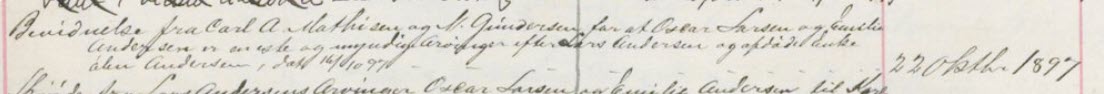 Bevidnelse fra Carl A. Mathisen og N. Gundersen for at Oscar Larsen og Emilie
Andersen er eneste og myndige Arvinger efter Lars Andersen og afdøde Enke
Andersen, dat 16/10 97
22 Oktbr. 1897
Skjøde fra Lars Andersens Arvinger Oscar Larsen og Emilie Andersen til Karl